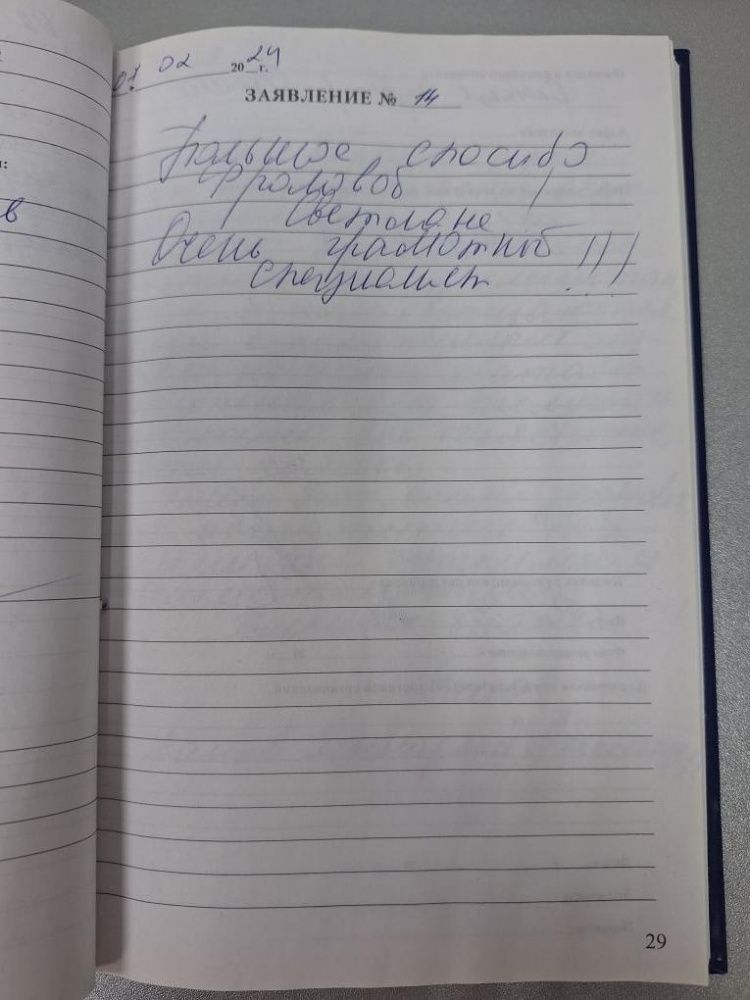 07 02 2024 г.
ЗАЯВЛЕНИЕ № 14
Большое спасибо
Фроловой
Светлане
Очень грамотный !!!
специалист
29